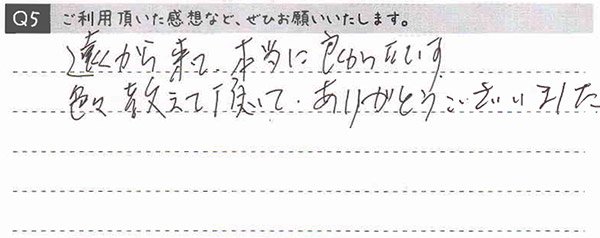 Q5 ご利用頂いた感想など、ぜひお願いいたします。
遠くから来て、本当に良かったです
色々教えて頂いて、ありがとうございました